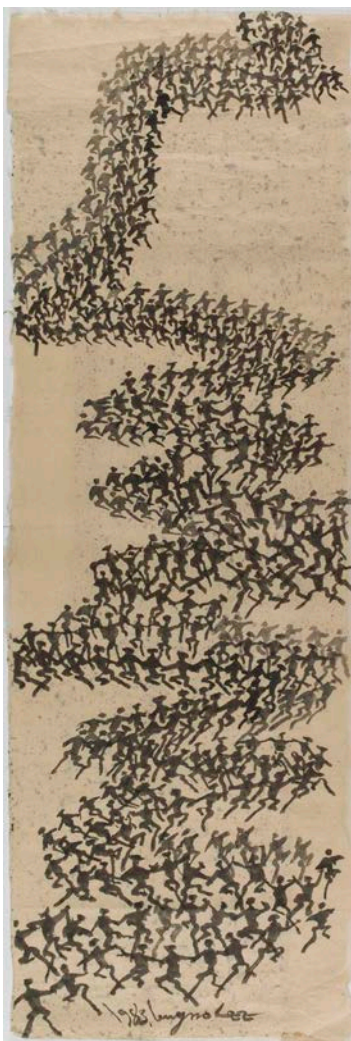 1983, ungno Lee